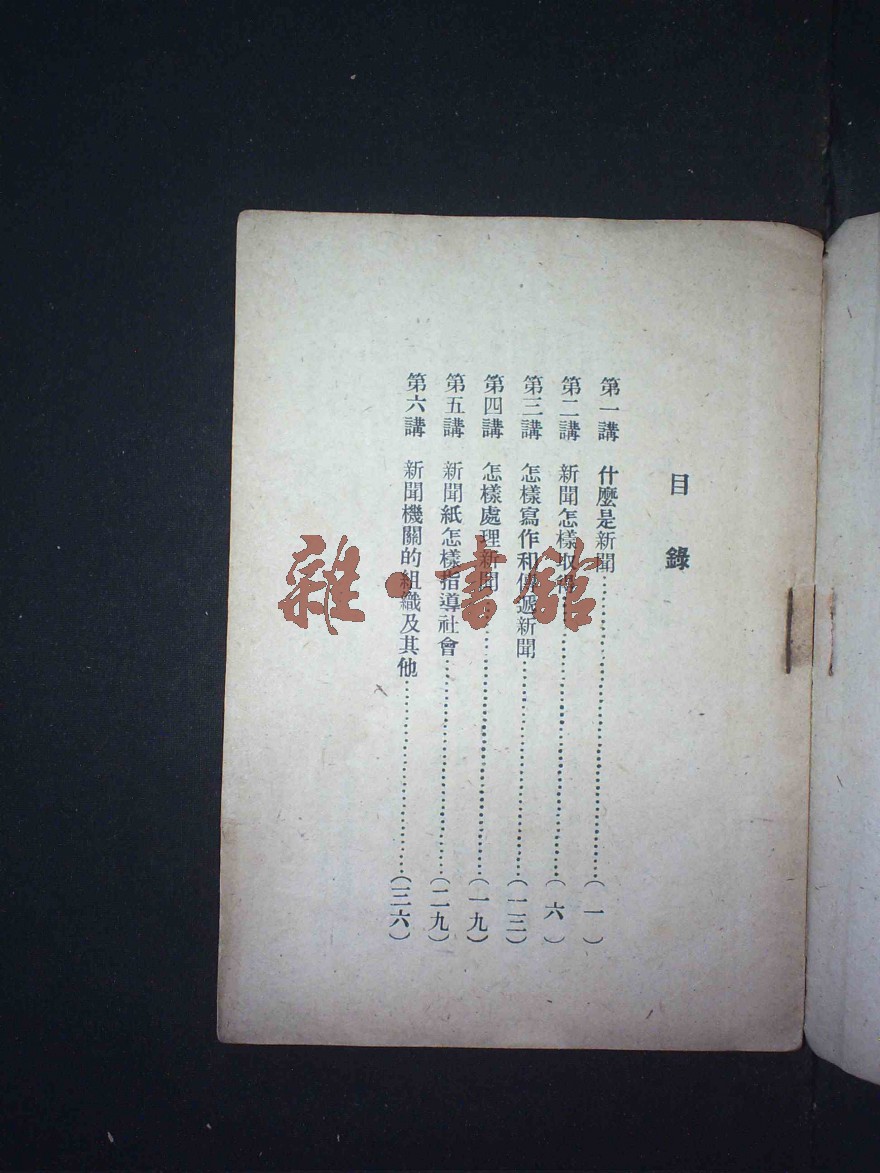 目錄
第一講 什麼是新聞…………………………(一)
第二講 新聞怎樣取得…………………………(六)
第三講 怎樣寫作和傳遞新聞…………………………(一三)
第四講 怎樣處理新聞…………………………(一九)
第五講 新聞紙怎樣指導社會…………………………(二九)
第六講 新聞機關的組織及其他…………………………(三六)
雜·書館